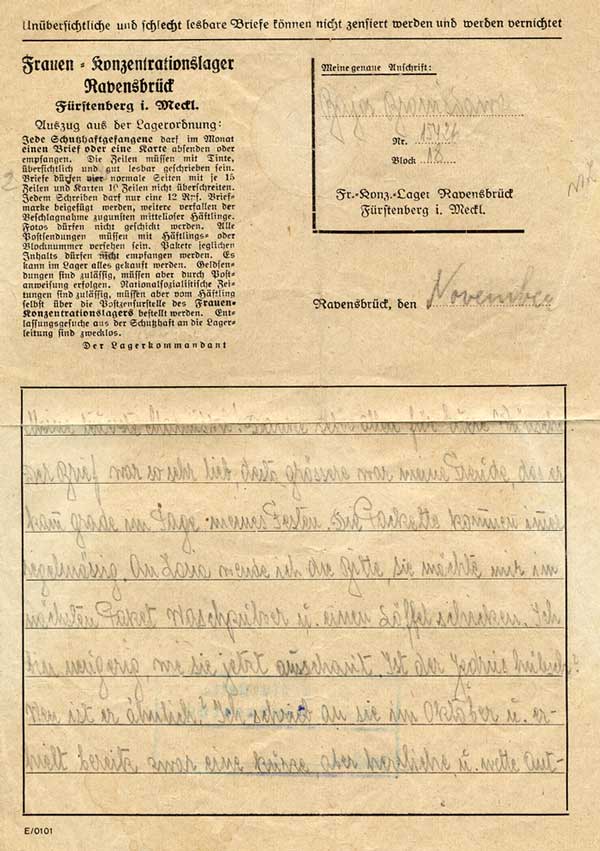 Unübersichtliche und schlecht lesbare Briefe können nicht zensiert werden und werden vernichtet
Frauen-Konzentrationslager
Ravensbrück
Fürstenberg i. Meckl.
Auszug aus der Lagerordnung:
Jede Schutzhaftgefangene darf im Monat
einen Brief oder eine Karte absenden oder
empfangen. Die Zeilen müssen mit Tinte,
übersichtlich und gut lesbar geschrieben sein.
Briefe dürfen vier normale Seiten mit je 15
Zeilen und Karten 10 Zeilen nicht überschreiten.
Jedem Schreiben darf nur eine 12 Rpf. Brief-
marke beigefügt werden, weitere verfallen der
Beschlagnahme zugunsten mittelloser Häftlinge.
Fotos dürfen nicht geschickt werden. Alle
Postsendungen müssen mit Häftlings- oder
Blocknummer versehen sein. Pakete jeglichen
Inhalts dürfen nicht empfangen werden. Es
kann im Lager alles gekauft werden. Geldsen-
dungen sind zulässig, müssen aber durch Post-
anweisung erfolgen. Nationalsozialistische Zei-
tungen sind zulässig, müssen aber vom Häftling
selbst über die Postzensurstelle des Frauen-
Konzentrationslagers bestellt werden. Ent-
lassungsgesuche aus der Schutzhaft an die Lager-
leitung sind zwecklos.
Der Lagerkommandant
Meine genaue Anschrift:
Nr. 15421
Block 18
Fr.-Konz.-Lager Ravensbrück
Fürstenberg i. Meckl.
Ravensbrück, den November
war es sehr lieb von meinem
kam grade im Tage meines Festes. Die Packette kommen immer
regelmässig. An wende ich die Bitte, sie möchte mir im
nächsten Packet Waschpulver u. einen Löffel schicken. Ich
bin neugierig, wie sie jetzt ausschaut. Ist der hübsch?
Wem ist er ähnlich. Ich schrieb an sie im Oktober u. er-
hielt bereits zwar eine kurze aber herzliche u. nette Ant-
E/0101